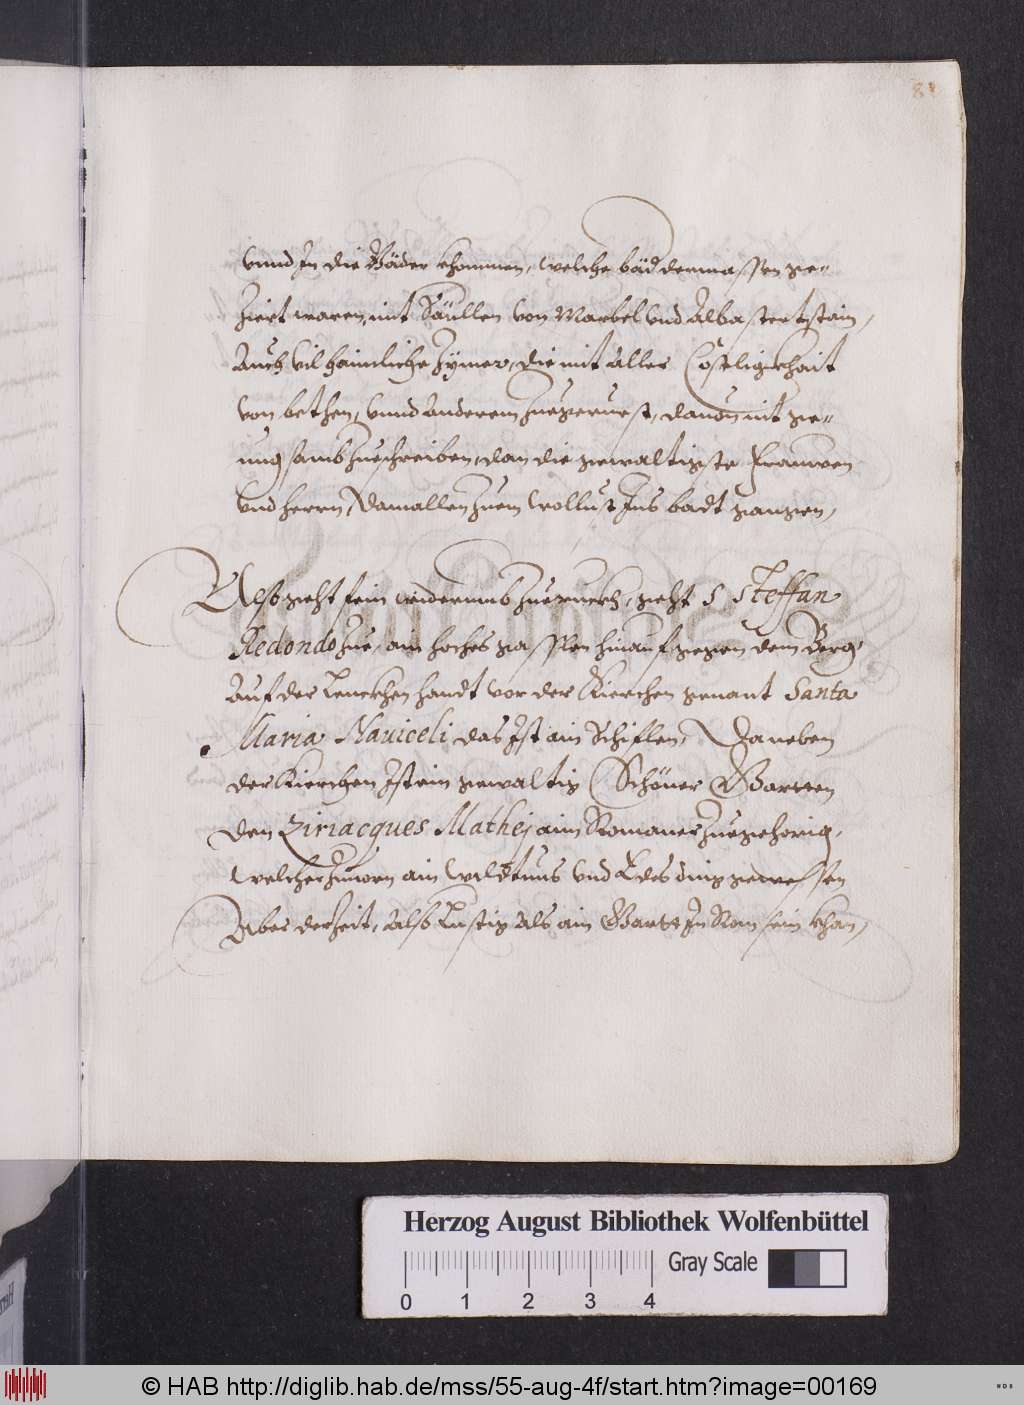 81
vnnd In die Bäder khommen, welche bäd dermassen ge-
Ziert waren, mit Säullen von Marbel vnd Albasterstain,
Auch vil haimliche Zÿmer, die mit aller Costligkhait
von bethen, vnnd Anderem Zuegericht, dauon nit ge-
nuegsamb Zueschreiben, dan die gewaltigste Frawen
vnd herrn, Damallen Zuem wollust Ins badt gangen,
Also geht sein widerumb Zueruckh, geht S Steffan
Redondo Zue, ain hoches gasslen hinauf gegen dem Berg,
Auf der Lenckhen handt vor der Kierchen genant Santa
Maria Nauiceli das Ist ain Schiflen, Daneben
der Kierchen Ist ein gewaltig Schöner Gartten
den Ziriacques Mathej aim Romaner Zuegehörig,
welcher Zuuorn ain wildtnus vnd Ödes ding gewessen
Aber derZeit, Also Lustig Als ain Gartt In Rom sein khan,
Herzog August Bibliothek Wolfenbüttel
Gray Scale
0 1 2 3 4
© HAB http://diglib.hab.de/mss/55-aug-4f/start.htm?image=00169